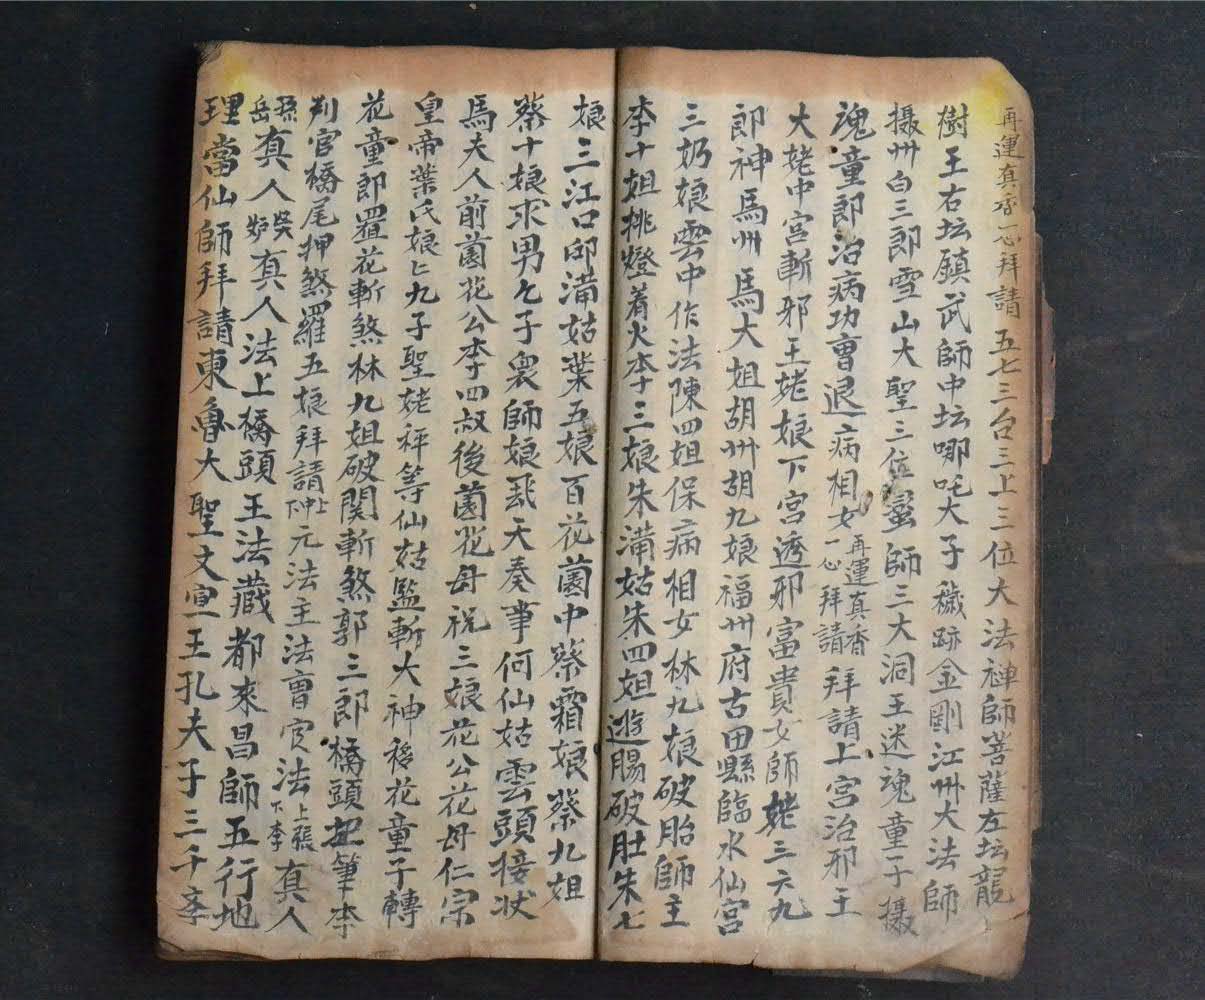 再運真香一心拜請五七三台三上三位大法禅師菩薩左坛龍
樹王右坛鎮武師中坛哪吒大子穢跡金剛江州大法師
摄州白三郎雪山大聖三位蛮師三大洞王迷魂童子攝
魂童郎治病功曹退病相女再運真香一心拜請拜請上宮治邪王
大姥中宮斬邪王姥娘下宮透邪富貴女師姥三六九
郎神馬州馬大姐胡州胡九娘福州府古田縣臨水仙宮
三奶娘雲中作法陳四姐保病相女林九娘破胎師主
李十姐挑燈着火李十三娘朱滿姑朱四姐遊腸破肚朱七
娘三江口邱滿姑葉五娘百花園中蔡霜娘蔡九姐
蔡十娘求男乞子衆師娘飛天奏事何仙姑雲頭接状
馬夫人前園花公李四叔後園花母祝三娘花公花母仁宗
皇帝葉氏娘亡九子聖姥秤等仙姑監斬大神移花童子轉
花童郎置花斬煞林九姐破関斬煞郭三郎橋頭把筆李
判官橋尾押煞羅五娘拜請上中下元法主法曹官法上張下李真人
孫岳真人癸妒真人法上橋頭王法藏都來昌師五行地
理當仙師拜請東魯大聖文宣王孔夫子三千